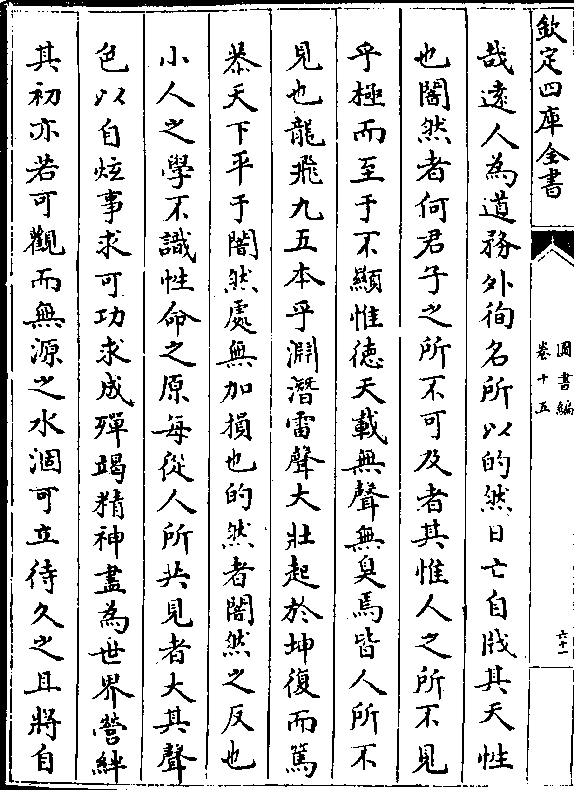 欽定四庫全書
圖書編
卷十五
六十一
哉遠人為道務外徇名所以的然日亡自戕其天性
也闇然者何君子之所不可及者其惟人之所不見
乎極而至于不顯惟徳天載無聲無臭焉皆人所不
見也龍飛九五本乎淵潛雷聲大壯起於坤復而篤
恭天下平于闇然處無加損也的然者闇然之反也
小人之學不識性命之原每從人所共見者大其聲
色以自炫事求可功求成殫竭精神盡為世界營絆
其初亦若可觀而無源之水涸可立待久之且將自